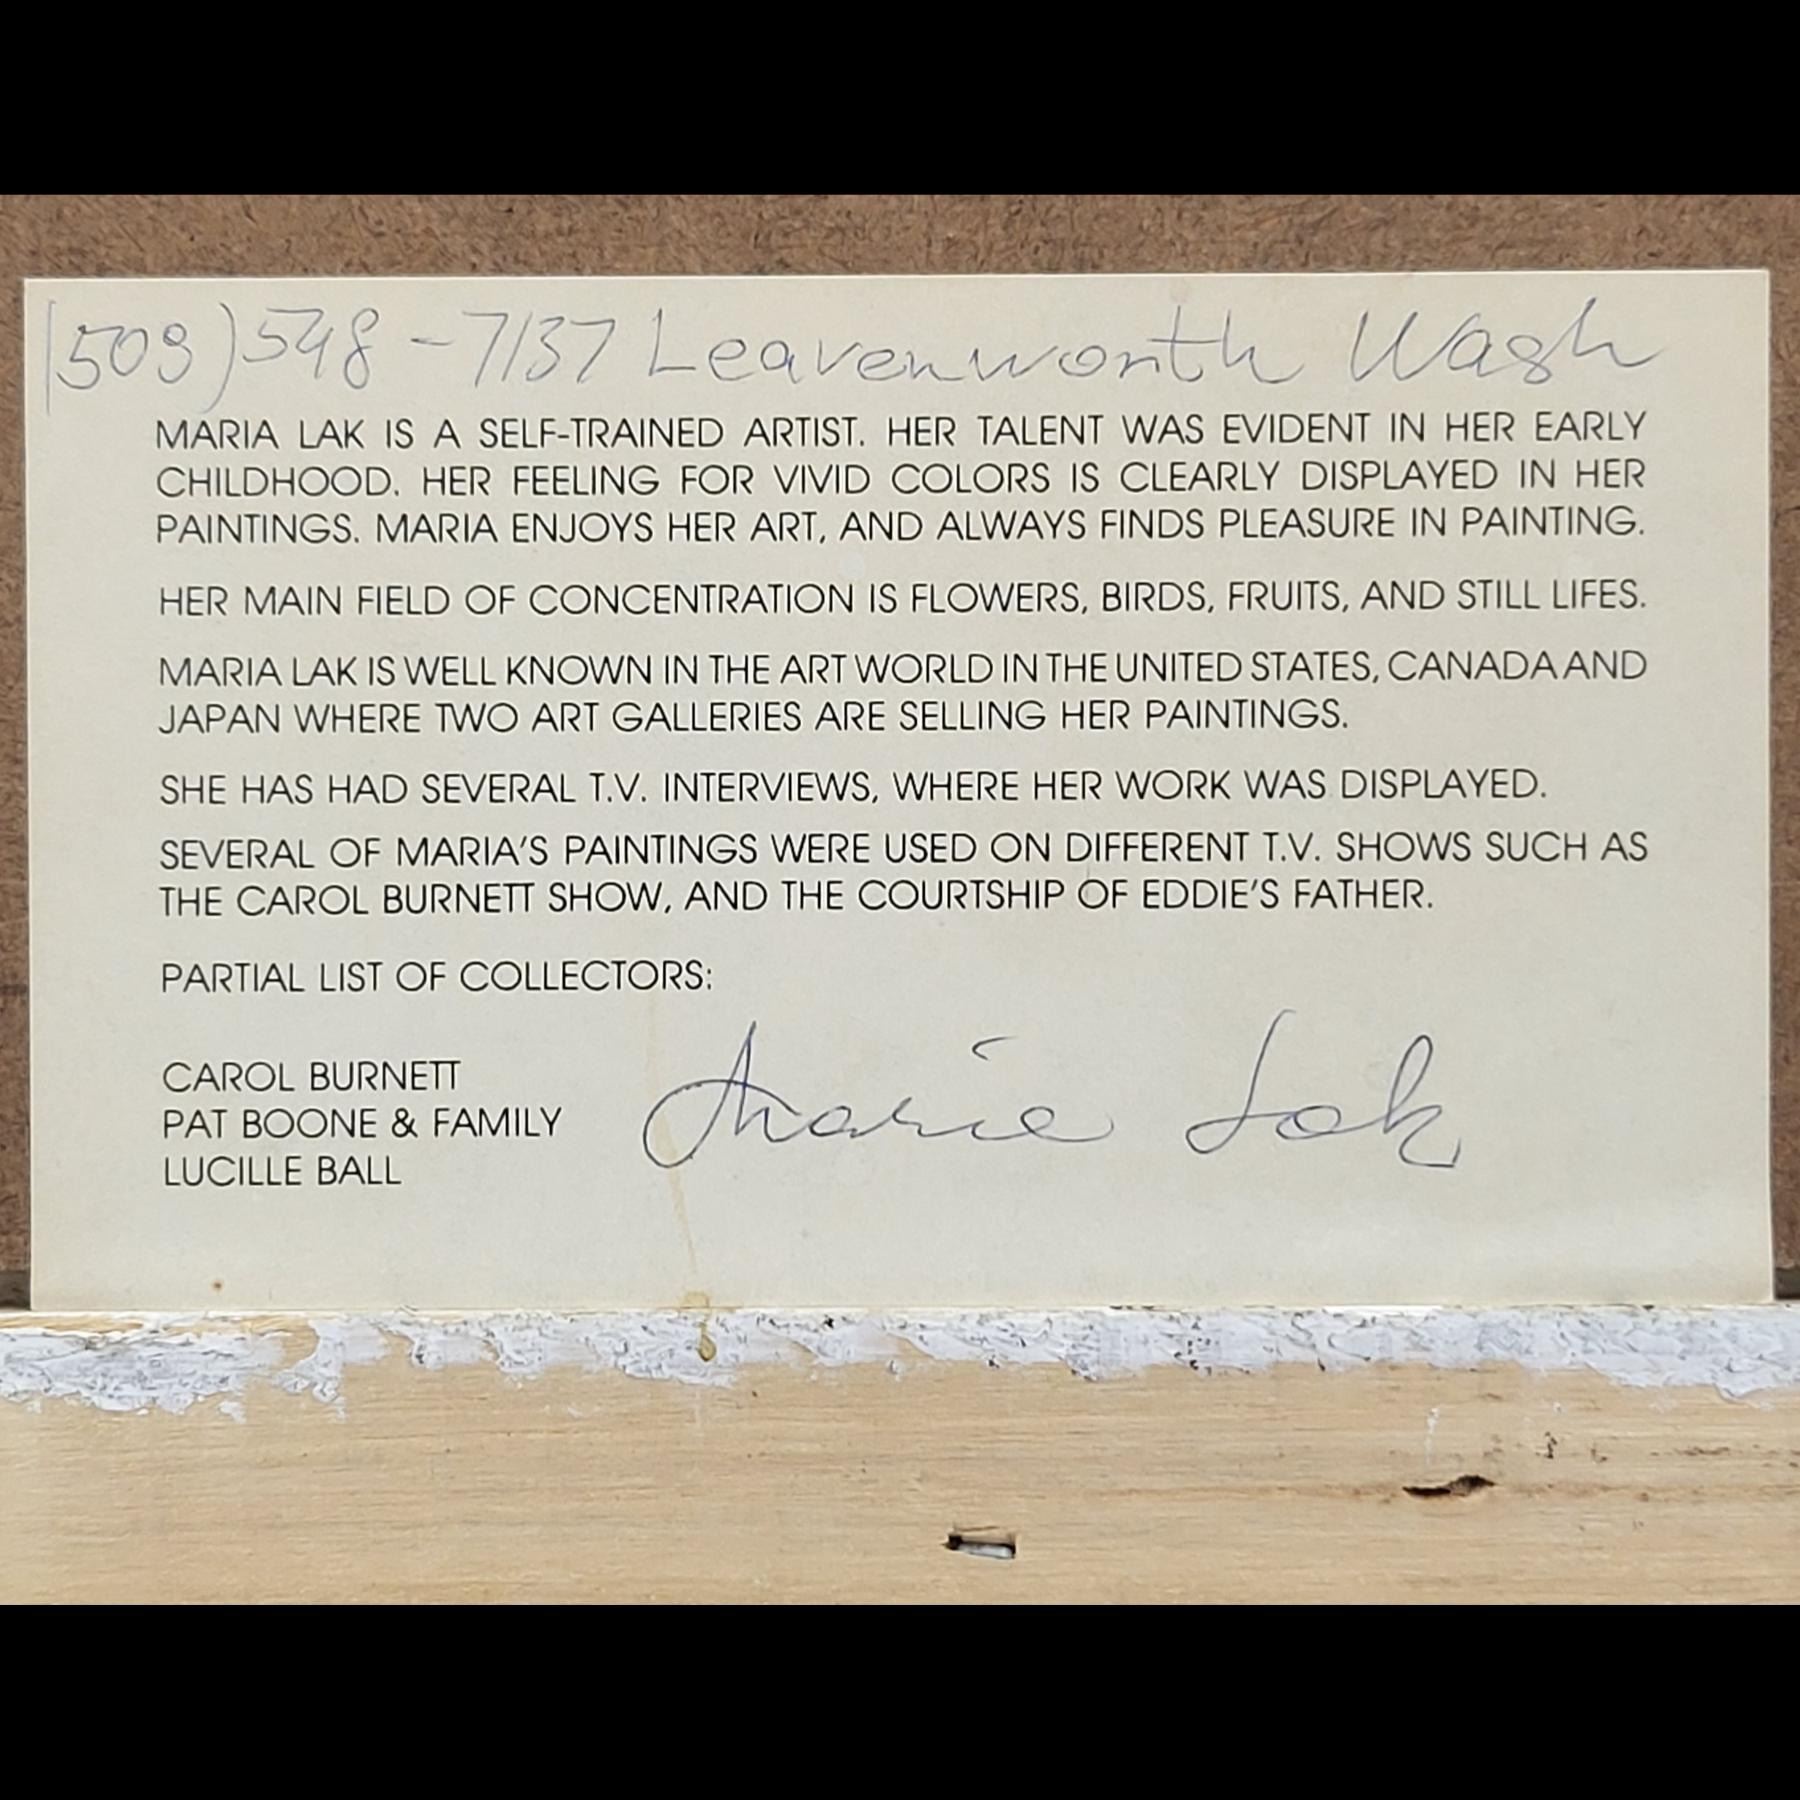 (509) 548-7137 Leavenworth Wash
MARIA LAK IS A SELF-TRAINED ARTIST. HER TALENT WAS EVIDENT IN HER EARLY
CHILDHOOD. HER FEELING FOR VIVID COLORS IS CLEARLY DISPLAYED IN HER
PAINTINGS. MARIA ENJOYS HER ART, AND ALWAYS FINDS PLEASURE IN PAINTING.
HER MAIN FIELD OF CONCENTRATION IS FLOWERS, BIRDS, FRUITS, AND STILL LIFES.
MARIA LAK IS WELL KNOWN IN THE ART WORLD IN THE UNITED STATES, CANADA AND
JAPAN WHERE TWO ART GALLERIES ARE SELLING HER PAINTINGS.
SHE HAS HAD SEVERAL T.V. INTERVIEWS, WHERE HER WORK WAS DISPLAYED.
SEVERAL OF MARIA'S PAINTINGS WERE USED ON DIFFERENT T.V. SHOWS SUCH AS
THE CAROL BURNETT SHOW, AND THE COURTSHIP OF EDDIE'S FATHER.
PARTIAL LIST OF COLLECTORS:
CAROL BURNETT
PAT BOONE & FAMILY
LUCILLE BALL
Maria Lak